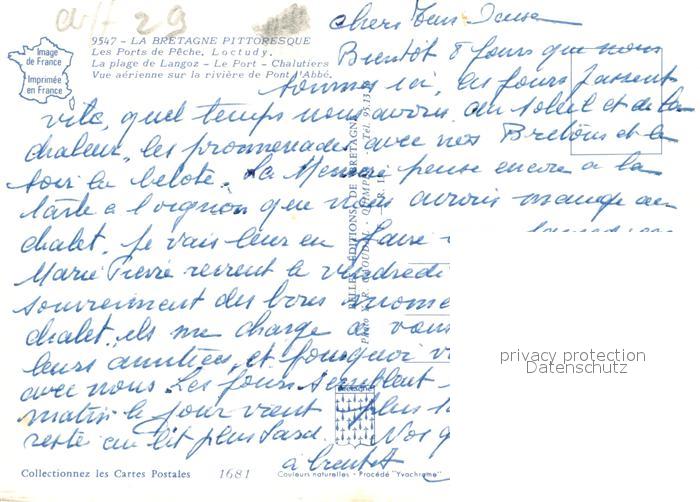 29
9547 - LA BRETAGNE PITTORESQUE
Les Ports de Pêche. Loctudy.
La plage de Langoz - Le Port - Chalutiers
Vue aérienne sur la rivière de Pont l'Abbé.
Image
de France
Imprimée
en France
chers
Bientôt 8 jours que nous
sommes ici, les jours passent
vite, quel temps nous avons du soleil et de la
chaleur, les promenades avec nos Bretons et le
soir la belote. La Mémère pense encore a la
tarte a l'oignon que nous avions mangé au
chalet. Je vais leur en faire
Marie Pierre
le vendredi
des bons
chalet. ils me charge de vous
leurs amitiées, et pourquoi
avec nous. Les jours semblent
matin le jour vient plus
reste au lit plus tard. Nos
à bientôt
privacy protection
Datenschutz
Collectionnez les Cartes Postales
1681
Couleurs naturelles - Procédé "Yvachrome"